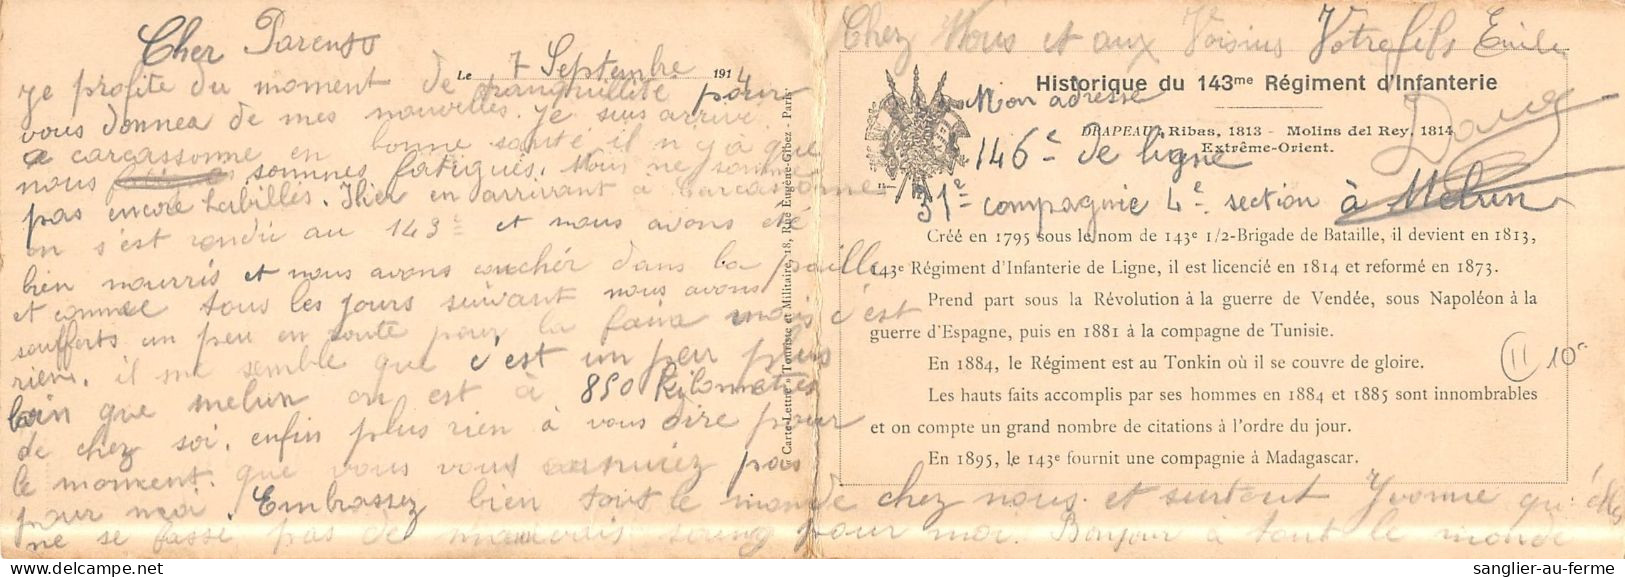 Cher Parents
Le 7 Septembre 1914
je profite du moment de tranquillité pour
vous donnea de mes nouvelles. Je suis arrivé
a carcassonne en bonne santé il n y à que
nous sommes fatigués. Nous ne somme
pas encore habillés. Hier en arrivant a Carcassonne
on s'est rendu au 143e et nous avons été
bien nourris et nous avons couchér dans la paille
et comme tous les jours suivant nous avons
soufferts un peu en route pour la faim mais c'est
rien. il me semble que c'est un peu plus
loin que melun on est à 850 kilometres
de chez soi. enfin plus rien à vous dire pour
le moment. que vous vous ennuiez pas
pour moi. Embrassez bien tout le monde chez nous. et surtout Yvonne qu'elles
ne se fasse pas de mauvais sang pour moi. Bonjour à tout le monde
Carte-Lettre "Touriste et Militaire, 18, Rue Eugène-Gibez - Paris
Chez Nous et aux Voisins Votre fils Emile
Historique du 143me Régiment d'Infanterie
Mon adresse
DRAPEAU: Ribas, 1813 - Molins del Rey, 1814
Extrême-Orient.
146e de ligne
31e compagnie 4e section à Melun
Créé en 1795 sous le nom de 143e 1/2-Brigade de Bataille, il devient en 1813,
143e Régiment d'Infanterie de Ligne, il est licencié en 1814 et reformé en 1873.
Prend part sous la Révolution à la guerre de Vendée, sous Napoléon à la
guerre d'Espagne, puis en 1881 à la compagne de Tunisie.
En 1884, le Régiment est au Tonkin où il se couvre de gloire.
Les hauts faits accomplis par ses hommes en 1884 et 1885 sont innombrables
et on compte un grand nombre de citations à l'ordre du jour.
En 1895, le 143e fournit une compagnie à Madagascar.
11 10e
sanglier-au-ferme